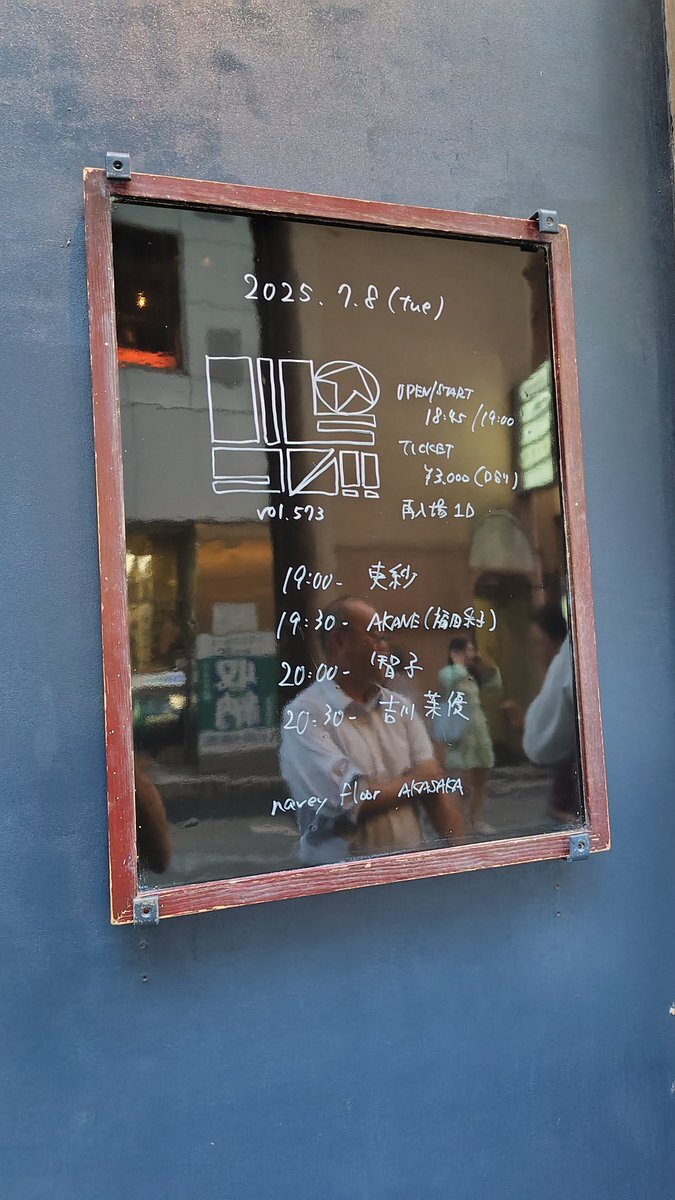 2025.7.8(tue)
OPEN/START
18:45/19:00
TICKET
¥3.000(D別)
再入場1D
vol.573
19:00- 東紗
19:30- AKANE(福田彩子)
20:00- 智子
20:30- 吉川茉優
navey floor AKASAKA